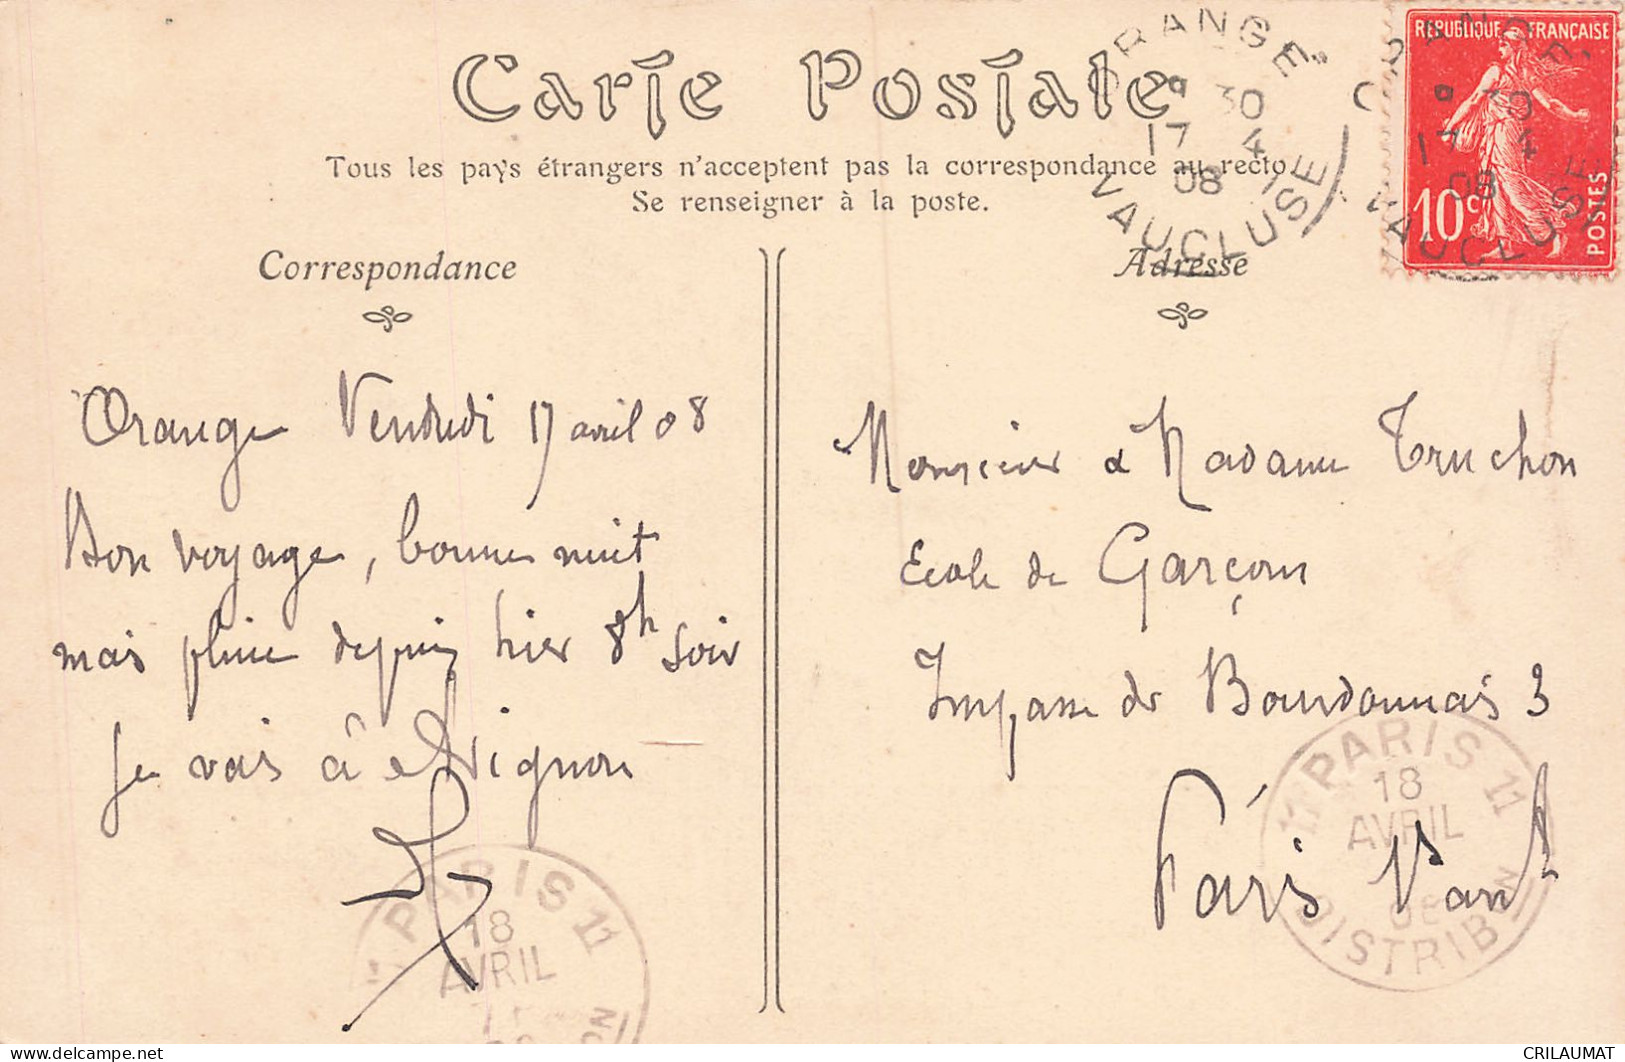 Carte Postale
Tous les pays étrangers n'acceptent pas la correspondance au recto
Se renseigner à la poste.
ORANGE
9 30
17 4
08
VAUCLUSE
RÉPUBLIQUE FRANÇAISE
10c
POSTES
Correspondance
Orange Vendredi 17 avril 08
Bon voyage, bonne nuit
mais pluie depuis hier 8h soir
Je vais à Avignon
PARIS 11
18
AVRIL
Adresse
Monsieur & Madame Truchon
Ecole de Garçons
Impasse de Bourdonnais 3
Paris
PARIS 11
18
AVRIL
08
DISTRIBON
CRILAUMAT